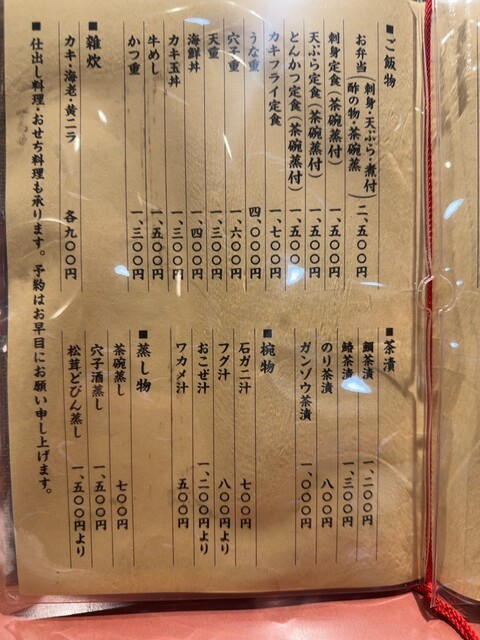 ■ご飯物
お弁当(刺身・天ぷら・煮付 酢の物・茶碗蒸) 二、五〇〇円
刺身定食(茶碗蒸付) 一、五〇〇円
天ぷら定食(茶碗蒸付) 一、五〇〇円
とんかつ定食(茶碗蒸付) 一、五〇〇円
カキフライ定食 一、七〇〇円
うな重 四、〇〇〇円
穴子重 一、六〇〇円
天重 一、三〇〇円
海鮮丼 一、四〇〇円
カキ玉丼 一、三〇〇円
牛めし 一、五〇〇円
かつ重 一、三〇〇円
■雑炊
カキ・海老・黄ニラ 各九〇〇円
■茶漬
鯛茶漬 一、二〇〇円
鰆茶漬 一、三〇〇円
のり茶漬 八〇〇円
ガンゾウ茶漬 一、〇〇〇円
■椀物
石ガニ汁 七〇〇円
フグ汁 八〇〇円より
おこぜ汁 一、二〇〇円より
ワカメ汁 五〇〇円
■蒸し物
茶碗蒸し 七〇〇円
穴子酒蒸し 一、五〇〇円
松茸どびん蒸し 一、五〇〇円より
■仕出し料理・おせち料理も承ります。予約はお早目にお願い申し上げます。